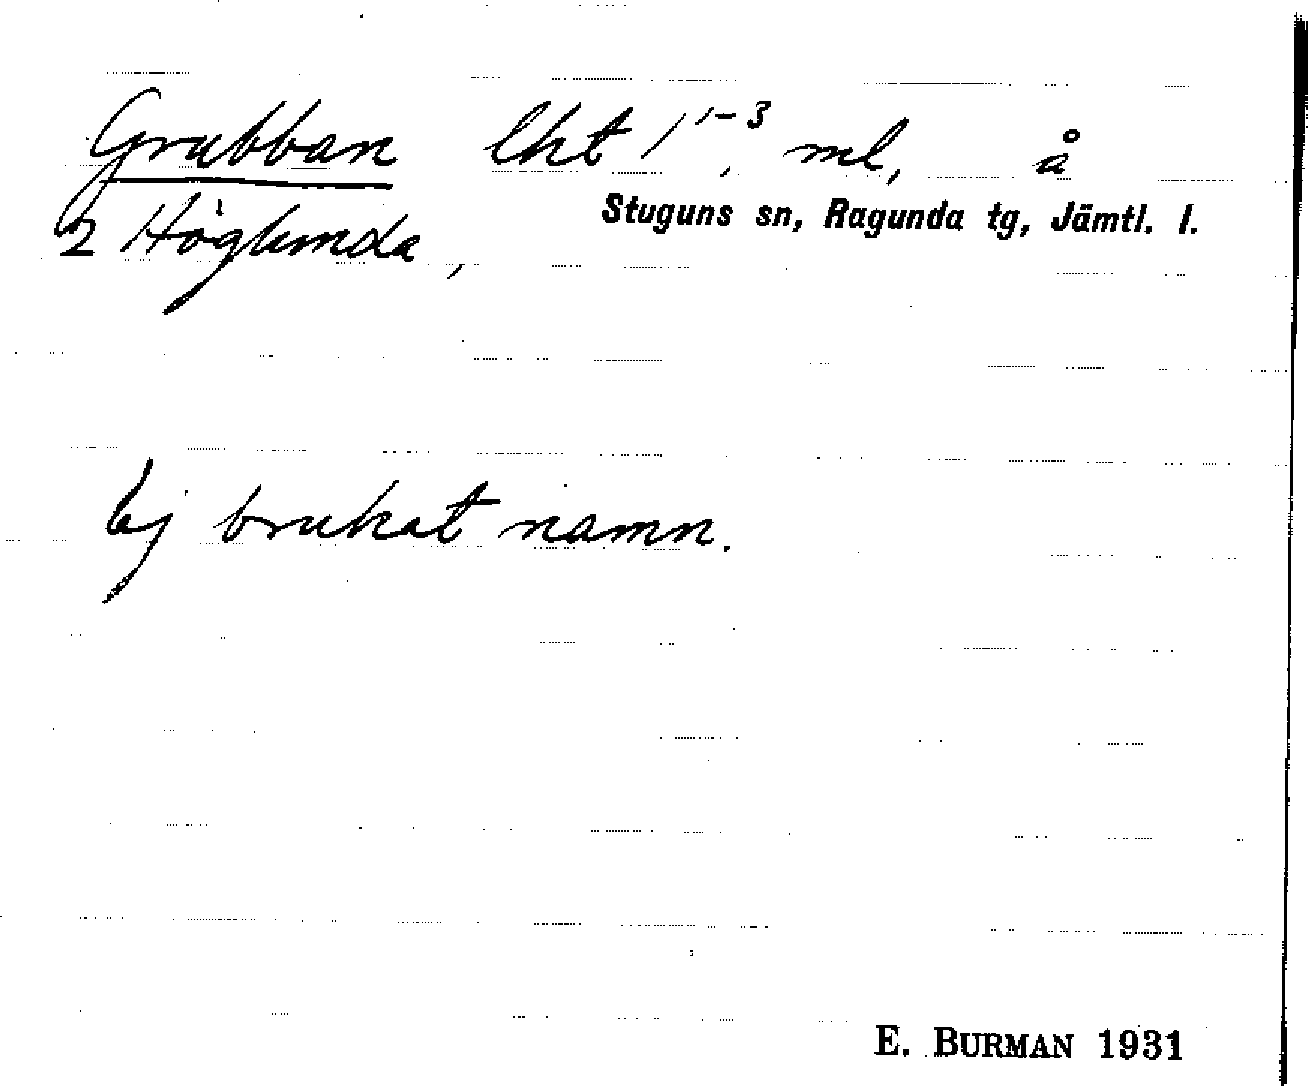 Grubban lht 1 1-3, ml, å
2 Höglunda, Stuguns sn, Ragunda tg, Jämtl. l.
Ej brukat namn.
E. BURMAN 1931